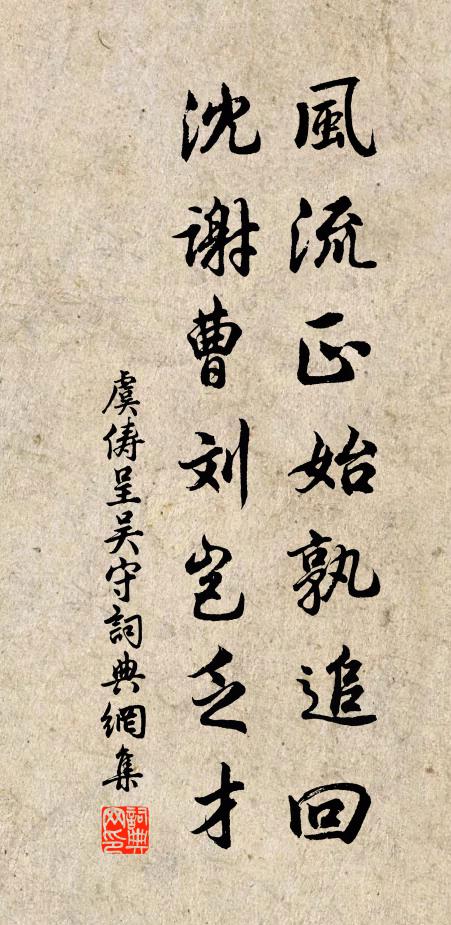 風流正始孰追回
沈謝曹刘豈乏才
虞儔呈吴守詞典網集
詞典網印